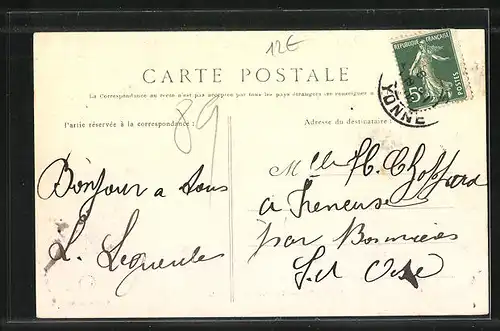 12E
REPUBLIQUE FRANÇAISE
5c
POSTES
YONNE
CARTE POSTALE
La Correspondance au recto n'est pas acceptée par tous les pays étrangers (se renseigner à
89
Partie réservée à la correspondance:
Adresse du destinataire:
Bonjour a tous
L.
Mlle H.
a Freneuse
par Bonnières
S. et Oise